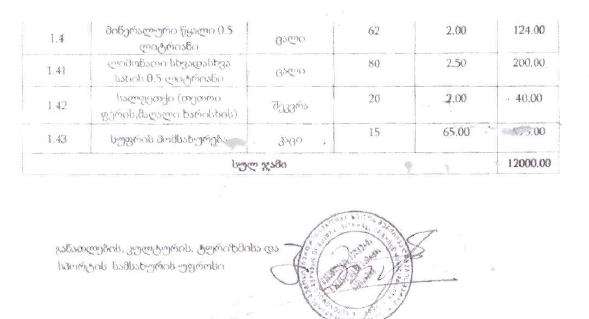 1.4 მინერალური წყალი 0.5 ლიტრიანი ცალი 62 2.00 124.00
1.41 ლიმონათი სხვადასხვა სახის 0.5 ლიტრიანი ცალი 80 2.50 200.00
1.42 სალფეთქი (თეთრი ფერის,მაღალი ხარისხის) შეკვრა 20 2.00 40.00
1.43 სუფრის მომსახურება კაცი 15 65.00
სულ ჯამი 12000.00
განათლების, კულტურის, ტურიზმისა და
სპორტის სამსახურის უფროსი